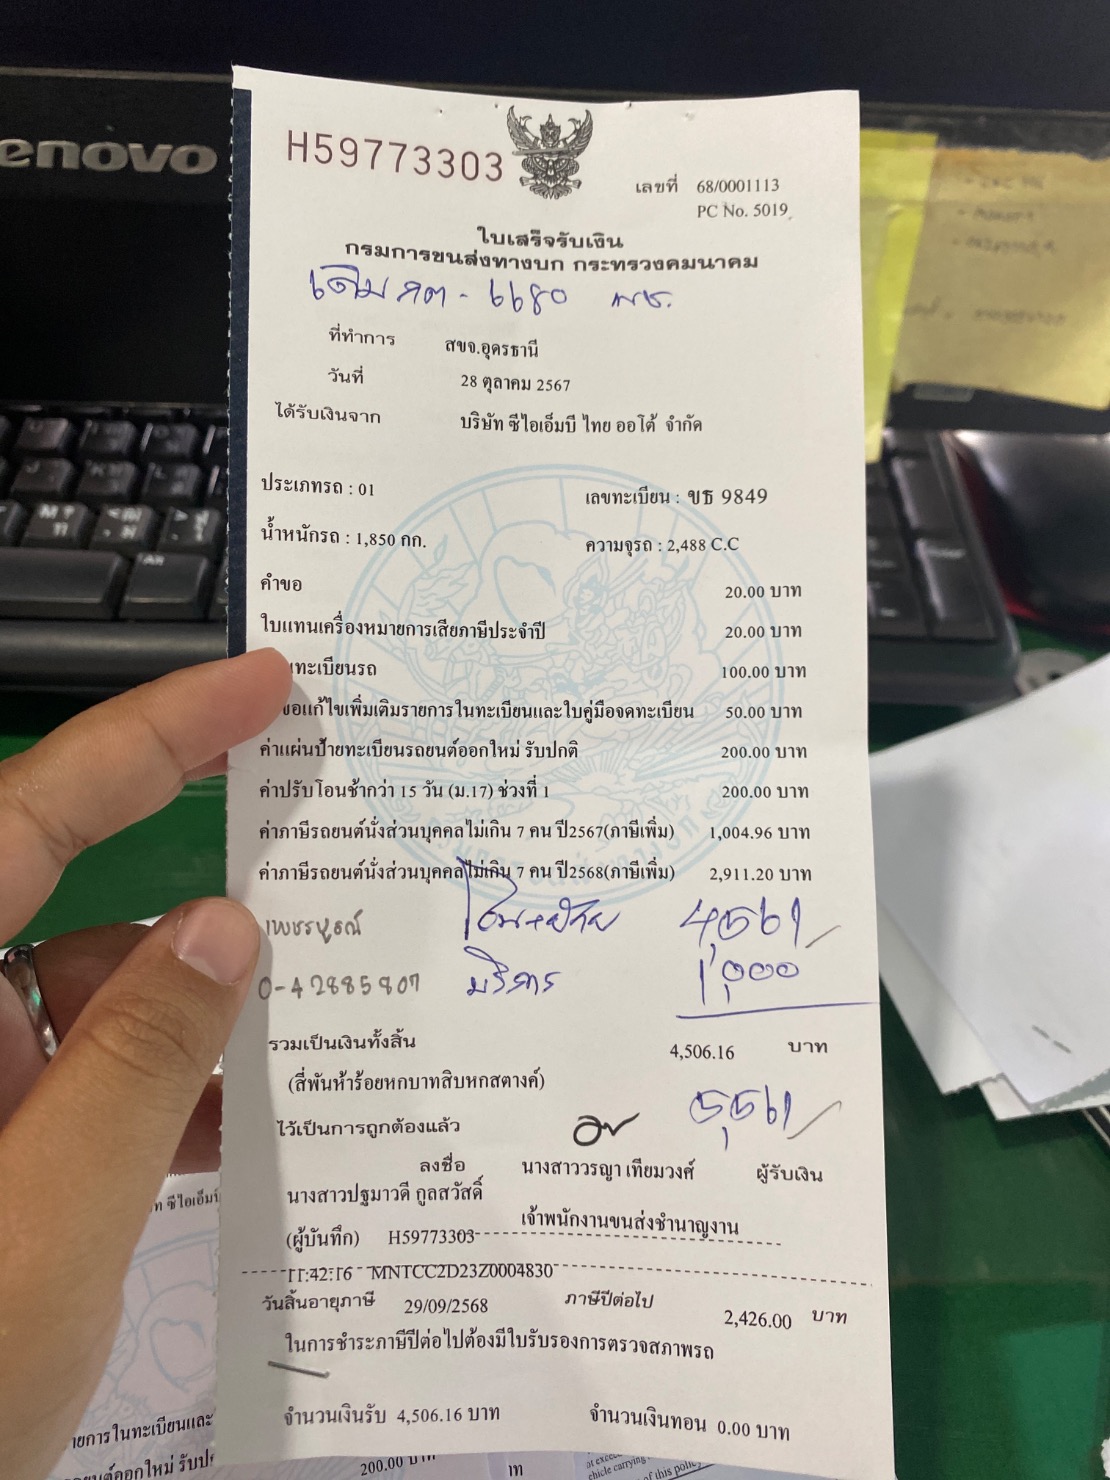 enovo
H59773303
เลขที่ 68/0001113
PC No. 5019
ใบเสร็จรับเงิน
กรมการขนส่งทางบก กระทรวงคมนาคม
เดิม กต - 6680 พช.
ที่ทำการ สขจ.อุดรธานี
วันที่ 28 ตุลาคม 2567
ได้รับเงินจาก บริษัท ซีไอเอ็มบี ไทย ออโต้ จำกัด
ประเภทรถ : 01 เลขทะเบียน : ขธ 9849
น้ำหนักรถ : 1,850 กก. ความจุรถ : 2,488 C.C
คำขอ 20.00 บาท
ใบแทนเครื่องหมายการเสียภาษีประจำปี 20.00 บาท
ทะเบียนรถ 100.00 บาท
ขอแก้ไขเพิ่มเติมรายการในทะเบียนและใบคู่มือจดทะเบียน 50.00 บาท
ค่าแผ่นป้ายทะเบียนรถยนต์ออกใหม่ รับปกติ 200.00 บาท
ค่าปรับโอนช้ากว่า 15 วัน (ม.17) ช่วงที่ 1 200.00 บาท
ค่าภาษีรถยนต์นั่งส่วนบุคคลไม่เกิน 7 คน ปี2567(ภาษีเพิ่ม) 1,004.96 บาท
ค่าภาษีรถยนต์นั่งส่วนบุคคลไม่เกิน 7 คน ปี2568(ภาษีเพิ่ม) 2,911.20 บาท
เพชรบูรณ์ 4,561
0-42885807 บริการ 1,000
รวมเป็นเงินทั้งสิ้น 4,506.16 บาท
(สี่พันห้าร้อยหกบาทสิบหกสตางค์)
5,561
ไว้เป็นการถูกต้องแล้ว
ลงชื่อ นางสาววรญา เทียมวงศ์ ผู้รับเงิน
นางสาวปฐมาวดี กูลสวัสดิ์
เจ้าพนักงานขนส่งชำนาญงาน
(ผู้บันทึก) H59773303
11:42:16 MNTCC2D23Z0004830
วันสิ้นอายุภาษี 29/09/2568 ภาษีปีต่อไป 2,426.00 บาท
ในการชำระภาษีปีต่อไปต้องมีใบรับรองการตรวจสภาพรถ
จำนวนเงินรับ 4,506.16 บาท จำนวนเงินทอน 0.00 บาท
ซีไอเอ็มบี
ายการในทะเบียนและ
ยนต์ออกใหม่ รับป
200.00
of this policy